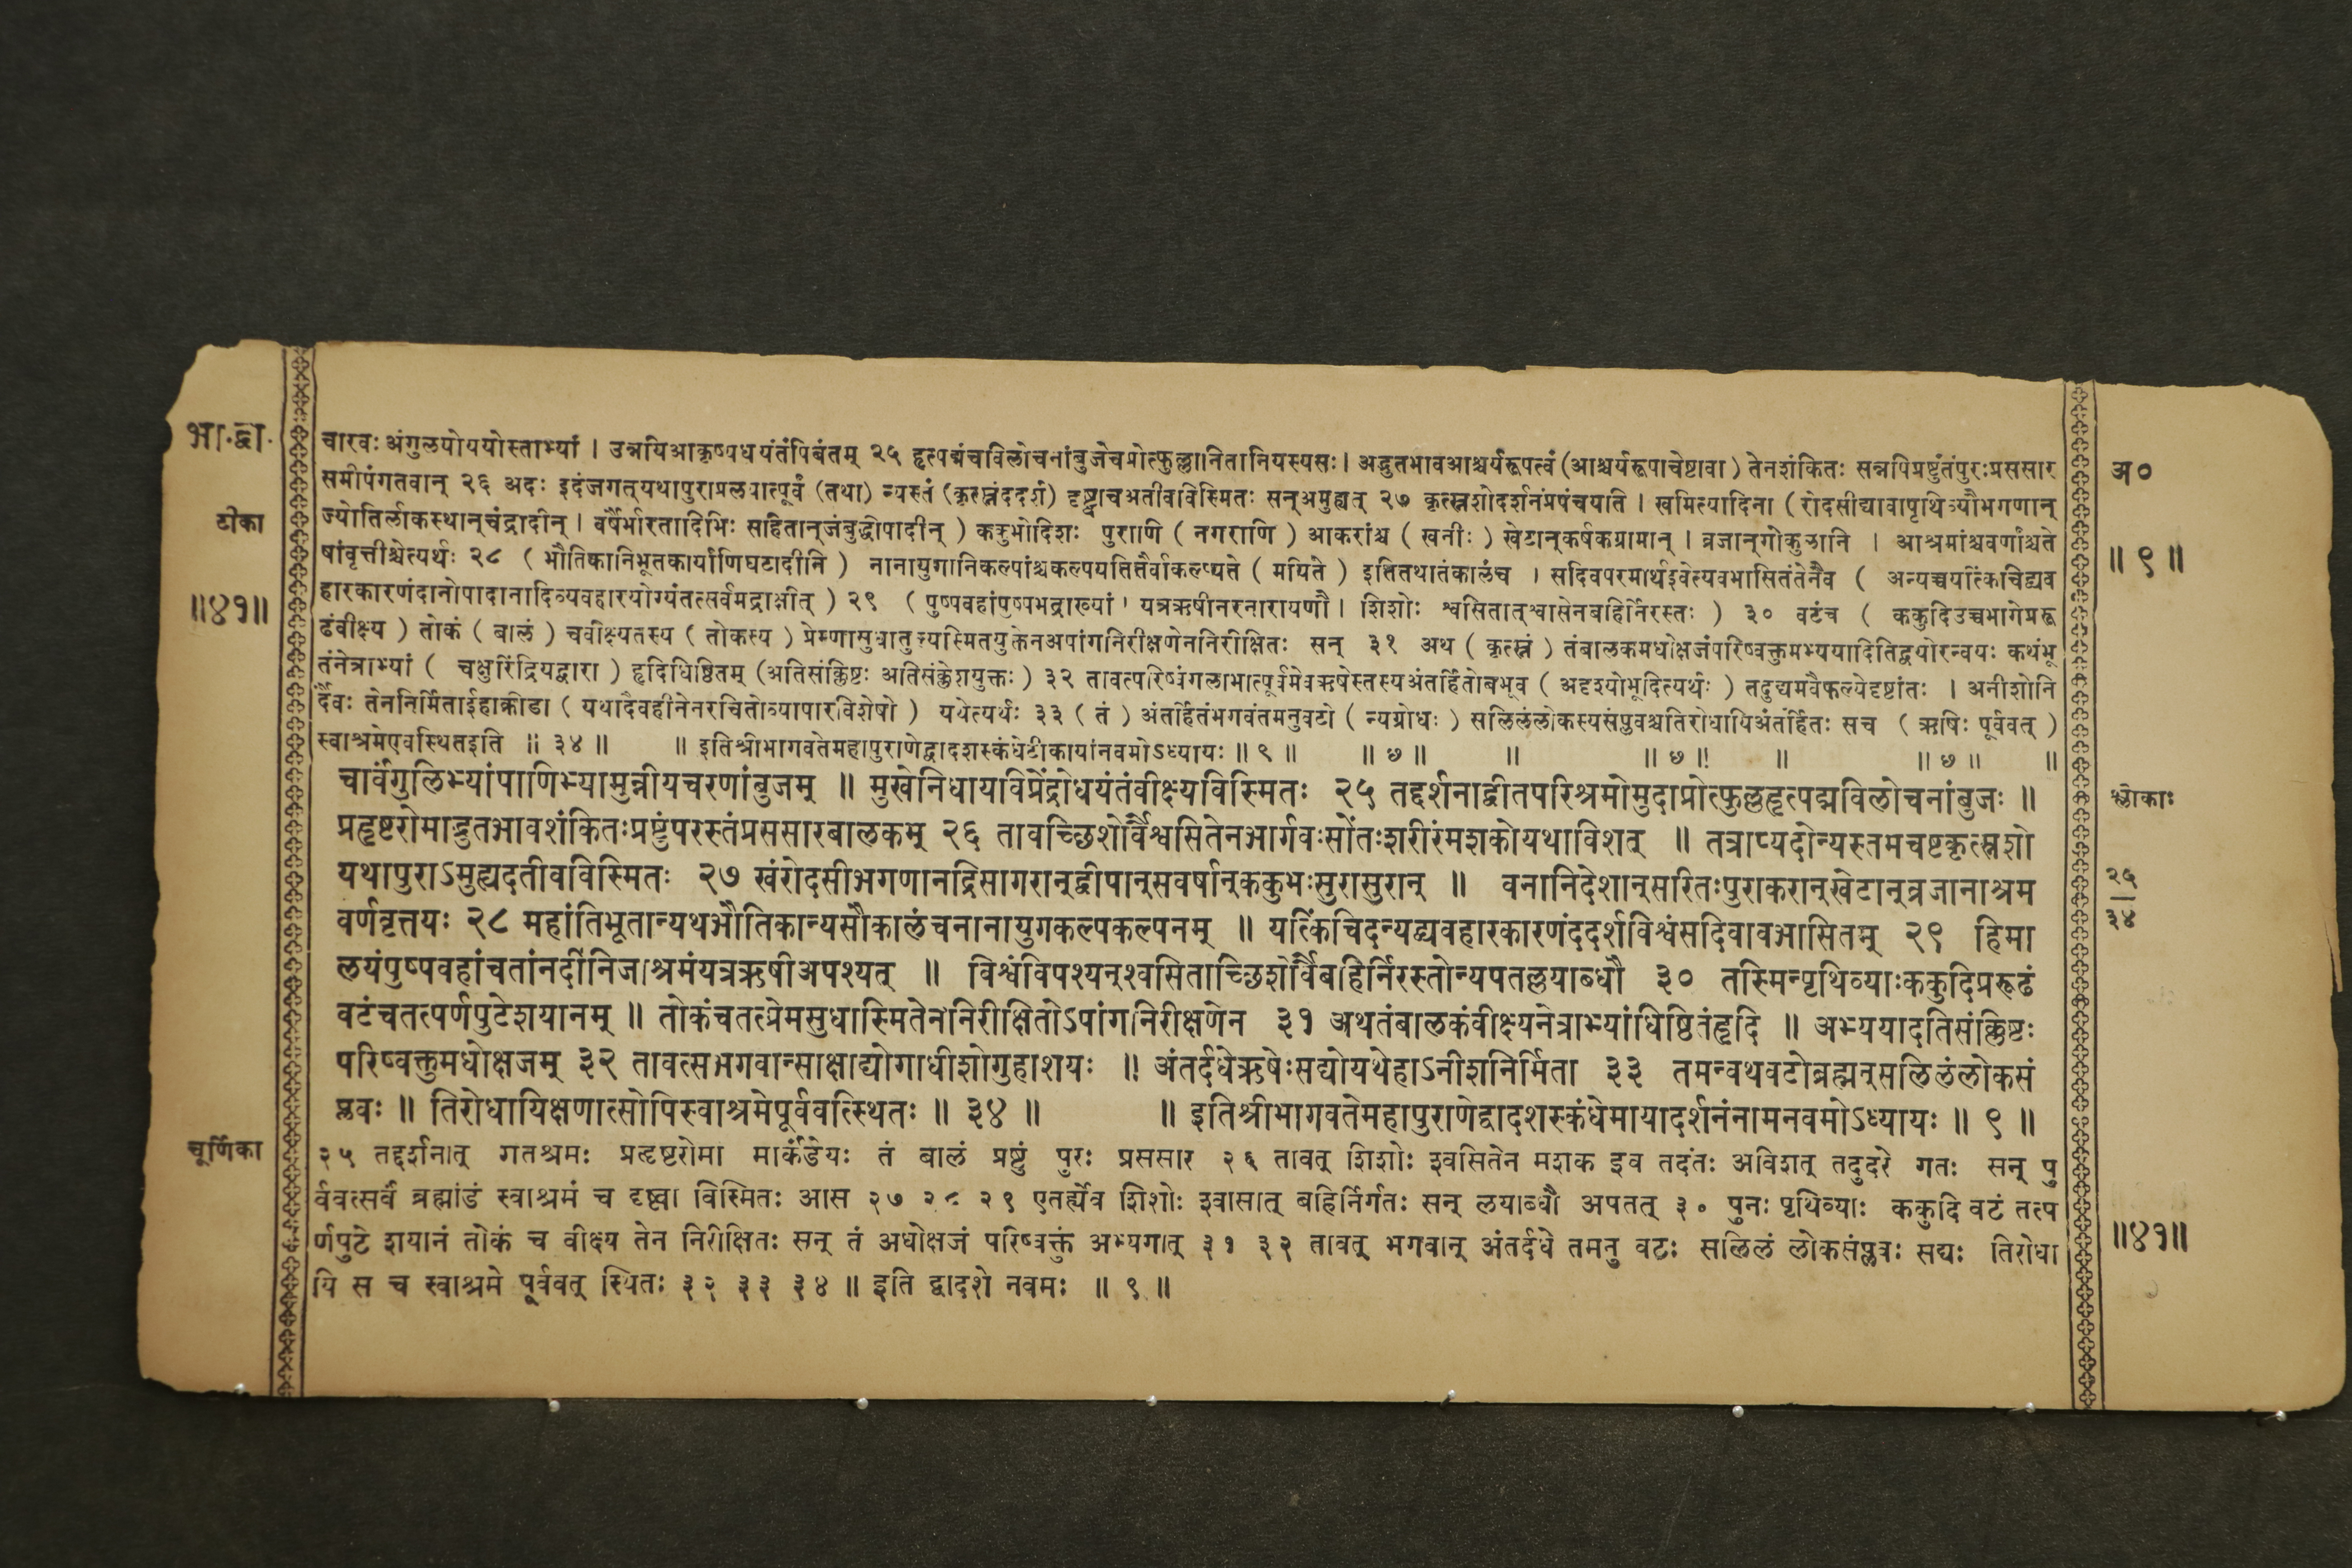 भा.द्वा.
टीका
॥४१॥
चारवः अंगुलयोययोस्ताभ्यां । उन्नयिआकृष्यधयंतंपिबंतम् २५ हृत्पद्मंचविलोचनांबुजेचप्रोत्फुल्लानितानियस्यसः। अद्भुतभावआश्चर्यरूपत्वं (आश्चर्यरूपाचेष्टावा ) तेनशंकितः सन्नपिप्रष्टुंतंपुरःप्रससार
समीपंगतवान् २६ अदः इदंजगत्यथापुराप्रलयात्पूर्वं (तथा) न्यस्तं (कृत्स्नंददर्श) दृष्ट्वाचअतीवविस्मितः सन्अमुह्यत् २७ कृत्स्नशोदर्शनंप्रपंचयति । खमित्यादिना ( रोदसीद्यावापृथिव्यौभगणान्
ज्योतिर्लोकस्थान्चंद्रादीन् । वर्षैर्भारतादिभिः सहितान्जंबुद्वीपादीन् ) ककुभोदिशः पुराणि ( नगराणि ) आकरांश्च ( खनीः ) खेटान्कर्षकग्रामान् । व्रजान्गोकुलानि । आश्रमांश्चवर्णांश्चते
षांवृत्तीश्चेत्यर्थः २८ ( भौतिकानिभूतकार्याणिघटादीनि ) नानायुगानिकल्पांश्चकल्पयतितैर्वाकल्प्यते ( मयिते ) इतितथातंकालंच । सदिवपरमार्थइवेत्यवभासितंतेनैव ( अन्यच्चयत्किंचिद्व्यव
हारकारणंदानोपादानादिव्यवहारयोग्यंतत्सर्वमद्राक्षीत् ) २९ ( पुष्पवहांपुष्पभद्राख्यां । यत्रऋषीनरनारायणौ । शिशोः श्वसितात्श्वासेनबहिर्निरस्तः ) ३० वटंच ( ककुदिउच्चभागेप्ररू
ढंवीक्ष्य ) तोकं ( बालं ) चवीक्ष्यतस्य ( तोकस्य ) प्रेम्णासुधातुल्यस्मितयुक्तेनअपांगनिरीक्षणेननिरीक्षितः सन् ३१ अथ ( कृत्स्नं ) तंबालकमधोक्षजंपरिष्वक्तुमभ्ययादितिद्वयोरन्वयः कथंभू
तंनेत्राभ्यां ( चक्षुरिंद्रियद्वारा ) हृदिधिष्ठितम् (अतिसंक्लिष्टः अतिसंक्लेशयुक्तः ) ३२ तावत्परिष्वंगलाभात्पूर्वमेवऋषेस्तस्यअंतर्हितोबभूव ( अदृश्योभूदित्यर्थः ) तदुद्यमवैफल्येदृष्टांतः । अनीशोनि
र्दैवः तेननिर्मिताईहाक्रीडा ( यथादैवहीनेनरचितोव्यापारविशेषो ) यथेत्यर्थः ३३ ( तं ) अंतर्हितंभगवंतमनुवटो ( न्यग्रोधः ) सलिलंलोकस्यसंप्लवश्चतिरोधायिअंतर्हितः सच ( ऋषिः पूर्ववत् )
स्वाश्रमेएवस्थितइति ॥ ३४ ॥ ॥ इतिश्रीभागवतेमहापुराणेद्वादशस्कंधेटीकायांनवमोऽध्यायः ॥ ९ ॥ ॥ ७ ॥ ॥ ॥ ७ ॥ ॥ ॥ ७ ॥ ॥
चार्वंगुलिभ्यांपाणिभ्यामुन्नीयचरणांबुजम् ॥ मुखेनिधायविप्रेंद्रोधयंतंवीक्ष्यविस्मितः २५ तद्दर्शनाद्वीतपरिश्रमोमुदाप्रोत्फुल्लहृत्पद्मविलोचनांबुजः ॥
प्रहृष्टरोमाद्भुतभावशंकितःप्रष्टुंपरस्तंप्रससारबालकम् २६ तावच्छिशोर्वैश्वसितेनभार्गवःसोंतःशरीरंमशकोयथाविशत् ॥ तत्राप्यदोन्यस्तमचष्टकृत्स्नशो
यथापुराऽमुह्यदतीवविस्मितः २७ खंरोदसीभगणानद्रिसागरान्द्वीपान्सवर्षान्ककुभःसुरासुरान् ॥ वनानिदेशान्सरितःपुराकरान्खेटान्व्रजानाश्रम
वर्णवृत्तयः २८ महांतिभूतान्यथभौतिकान्यसौकालंचनानायुगकल्पकल्पनम् ॥ यत्किंचिदन्यद्व्यवहारकारणंददर्शविश्वंसदिवावभासितम् २९ हिमा
लयंपुष्पवहांचतांनदींनिजाश्रमंयत्रऋषीअपश्यत् ॥ विश्वंविपश्यन्श्वसिताच्छिशोर्वैबहिर्निरस्तोन्यपतल्लयाब्धौ ३० तस्मिन्पृथिव्याःककुदिप्ररूढं
वटंचतत्पर्णपुटेशयानम् ॥ तोकंचतत्प्रेमसुधास्मितेननिरीक्षितोऽपांगनिरीक्षणेन ३१ अथतंबालकंवीक्ष्यनेत्राभ्यांधिष्ठितंहृदि ॥ अभ्ययादतिसंक्लिष्टः
परिष्वक्तुमधोक्षजम् ३२ तावत्सभगवान्साक्षाद्योगाधीशोगुहाशयः ॥ अंतर्दधेऋषेःसद्योयथेहाऽनीशनिर्मिता ३३ तमन्वथवटोब्रह्मन्सलिलंलोकसं
प्लवः ॥ तिरोधायिक्षणात्सोपिस्वाश्रमेपूर्ववत्स्थितः ॥ ३४ ॥ ॥ इतिश्रीभागवतेमहापुराणेद्वादशस्कंधेमायादर्शनंनामनवमोऽध्यायः ॥ ९ ॥
चूर्णिका
२५ तद्दर्शनात् गतश्रमः प्रहृष्टरोमा मार्कंडेयः तं बालं प्रष्टुं पुरः प्रससार २६ तावत् शिशोः श्वसितेन मशक इव तदंतः अविशत् तदुदरे गतः सन् पु
र्ववत्सर्वं ब्रह्मांडं स्वाश्रमं च दृष्ट्वा विस्मितः आस २७ २८ २९ एतर्ह्येव शिशोः श्वासात् बहिर्निर्गतः सन् लयाब्धौ अपतत् ३० पुनः पृथिव्याः ककुदि वटं तत्प
र्णपुटे शयानं तोकं च वीक्ष्य तेन निरीक्षितः सन् तं अधोक्षजं परिष्वक्तुं अभ्यगात् ३१ ३२ तावत् भगवान् अंतर्दधे तमनु वटः सलिलं लोकसंप्लवः सद्यः तिरोधा
यि स च स्वाश्रमे पूर्ववत् स्थितः ३२ ३३ ३४ ॥ इति द्वादशे नवमः ॥ ९ ॥
अ०
॥ ९ ॥
श्लोकाः
२५
३४
॥४१॥